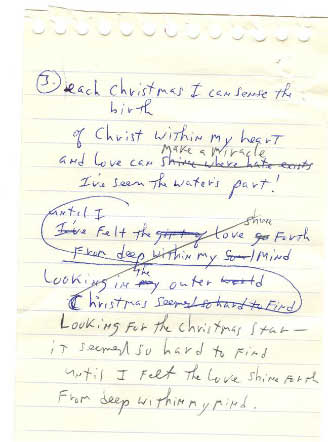 3. each Christmas I can sense the
birth
of Christ within my heart
Make a miracle
and Love can shine where hate exists
I've seen the waters part!
until I shine
I've Felt the gift of Love go Forth
From deep within my soul Mind
the
Looking in my outer world
Christmas seemed so hard to Find
Looking For the Christmas Star—
it seemed so hard to Find
until I Felt the Love shine Forth
From deep within my mind.